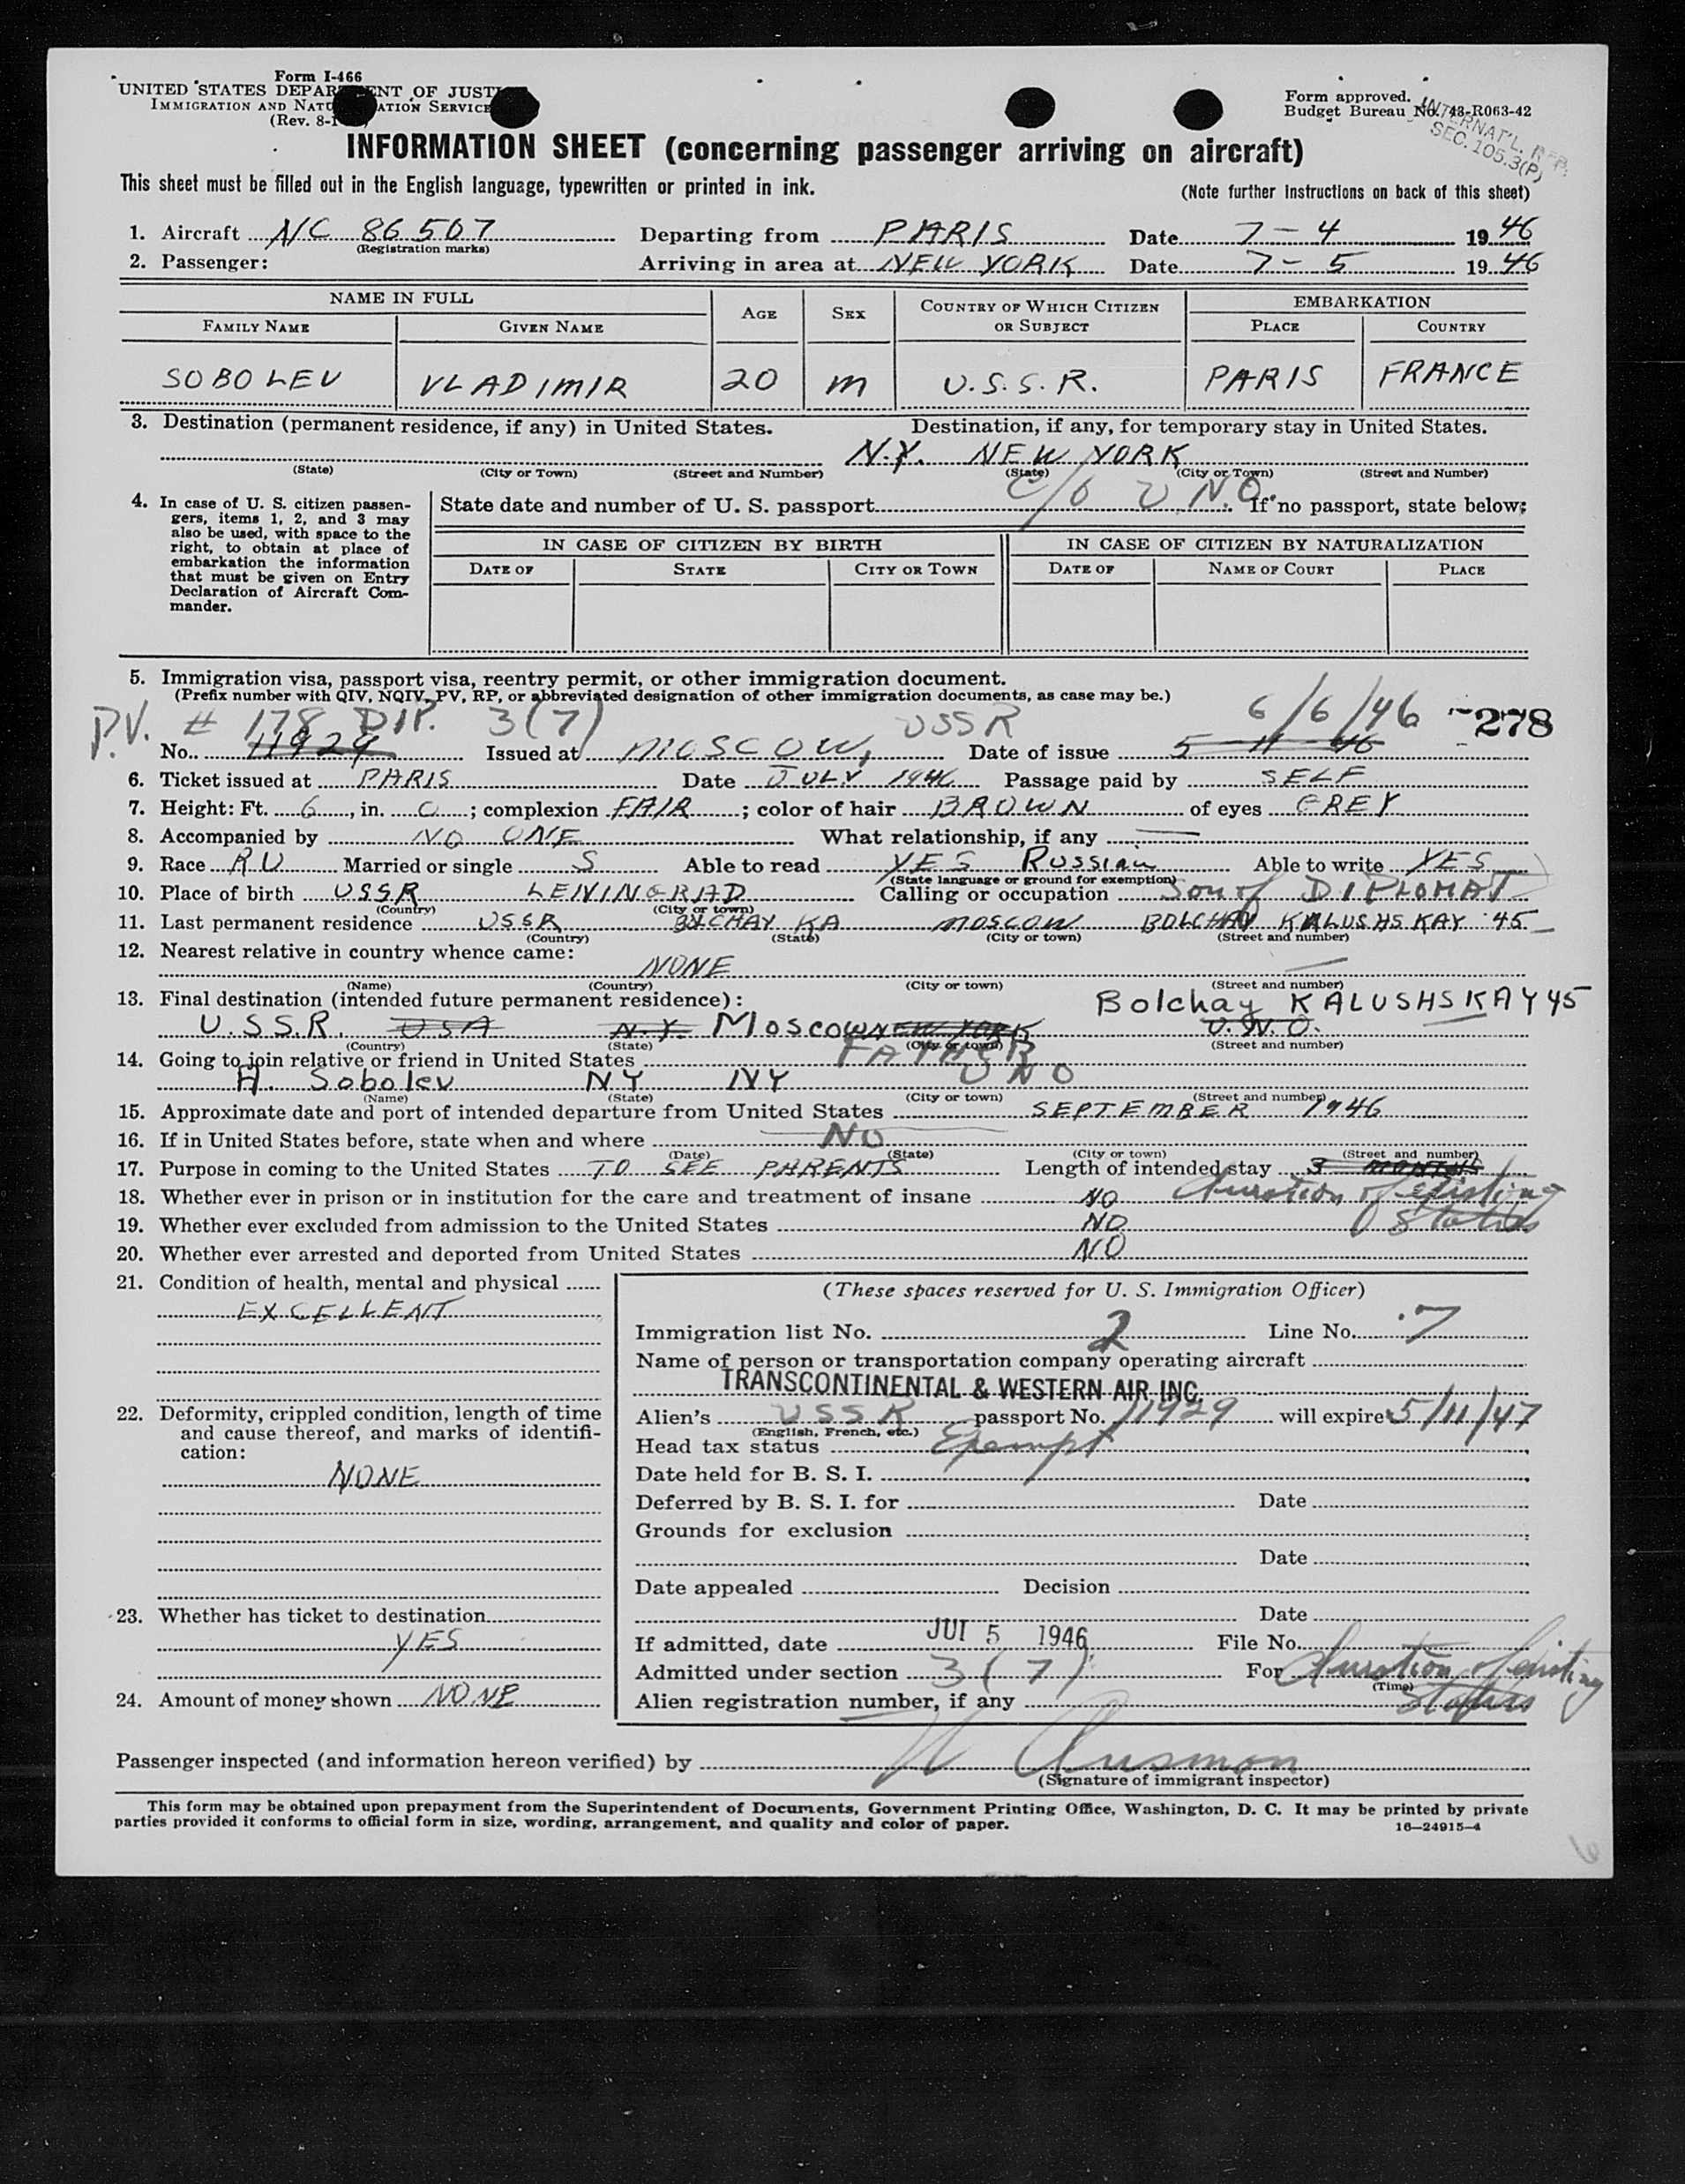 Form I-466
UNITED STATES DEPAR NT OF JUST
IMMIGRATION AND NATU ATION SERVICE
(Rev. 8-1
Form approved.
Budget Bureau No. 43-R063-42
INTERNAT'L.
SEC. 105.3(P)
INFORMATION SHEET (concerning passenger arriving on aircraft)
This sheet must be filled out in the English language, typewritten or printed in ink. (Note further instructions on back of this sheet)
1. Aircraft NC 86507 Departing from PARIS Date 7-4 1946
(Registration marks)
2. Passenger: Arriving in area at NEW YORK Date 7-5 1946
NAME IN FULL AGE SEX COUNTRY OF WHICH CITIZEN OR SUBJECT EMBARKATION
FAMILY NAME GIVEN NAME PLACE COUNTRY
SOBOLEV VLADIMIR 20 M U.S.S.R. PARIS FRANCE
3. Destination (permanent residence, if any) in United States. Destination, if any, for temporary stay in United States.
N.Y. NEW YORK
(State) (City or Town) (Street and Number) (State) (City or Town) (Street and Number)
C/O U.N.O.
4. In case of U. S. citizen passengers, items 1, 2, and 3 may also be used, with space to the right, to obtain at place of embarkation the information that must be given on Entry Declaration of Aircraft Commander.
State date and number of U. S. passport If no passport, state below:
IN CASE OF CITIZEN BY BIRTH IN CASE OF CITIZEN BY NATURALIZATION
DATE OF STATE CITY OR TOWN DATE OF NAME OF COURT PLACE
5. Immigration visa, passport visa, reentry permit, or other immigration document.
(Prefix number with QIV, NQIV, PV, RP, or abbreviated designation of other immigration documents, as case may be.)
P.V. # 178 DIP. 3(7) USSR 6/6/46 278
No. 11929 Issued at MOSCOW, Date of issue 5 11 46
6. Ticket issued at PARIS Date JULY 1946 Passage paid by SELF
7. Height: Ft. 6, in. 0; complexion FAIR; color of hair BROWN of eyes GREY
8. Accompanied by NO ONE What relationship, if any —
9. Race RU Married or single S Able to read YES Russian Able to write YES
(State language or ground for exemption)
10. Place of birth USSR LENINGRAD Calling or occupation Son of DIPLOMAT
(Country) (City or town)
11. Last permanent residence USSR BOLCHAY KA MOSCOW BOLCHAY KALUSHSKAY 45
(Country) (State) (City or town) (Street and number)
12. Nearest relative in country whence came:
NONE —
(Name) (Country) (City or town) (Street and number)
13. Final destination (intended future permanent residence): Bolchay KALUSHSKAY 45
U.S.S.R. USA N.Y. Moscow NEW YORK U.N.O.
(Country) (State) (City or town) (Street and number)
14. Going to join relative or friend in United States FATHER
A. Sobolev NY NY UNO
(Name) (State) (City or town) (Street and number)
15. Approximate date and port of intended departure from United States SEPTEMBER 1946
16. If in United States before, state when and where NO
(Date) (State) (City or town) (Street and number)
17. Purpose in coming to the United States TO SEE PARENTS Length of intended stay 3 MONTHS
18. Whether ever in prison or in institution for the care and treatment of insane NO duration of existing
19. Whether ever excluded from admission to the United States NO status
20. Whether ever arrested and deported from United States NO
21. Condition of health, mental and physical
EXCELLENT
22. Deformity, crippled condition, length of time and cause thereof, and marks of identification:
NONE
23. Whether has ticket to destination
YES
24. Amount of money shown NONE
(These spaces reserved for U. S. Immigration Officer)
Immigration list No. 2 Line No. 7
Name of person or transportation company operating aircraft
TRANSCONTINENTAL & WESTERN AIR, INC.
Alien's USSR passport No. 11929 will expire 5/11/47
(English, French, etc.)
Head tax status Exempt
Date held for B. S. I.
Deferred by B. S. I. for Date
Grounds for exclusion
Date
Date appealed Decision
Date
If admitted, date JUL 5 1946 File No.
Admitted under section 3(7) For duration of existing
(Time)
Alien registration number, if any status
Passenger inspected (and information hereon verified) by
(Signature of immigrant inspector)
This form may be obtained upon prepayment from the Superintendent of Documents, Government Printing Office, Washington, D. C. It may be printed by private
parties provided it conforms to official form in size, wording, arrangement, and quality and color of paper.
16—24915-4
6